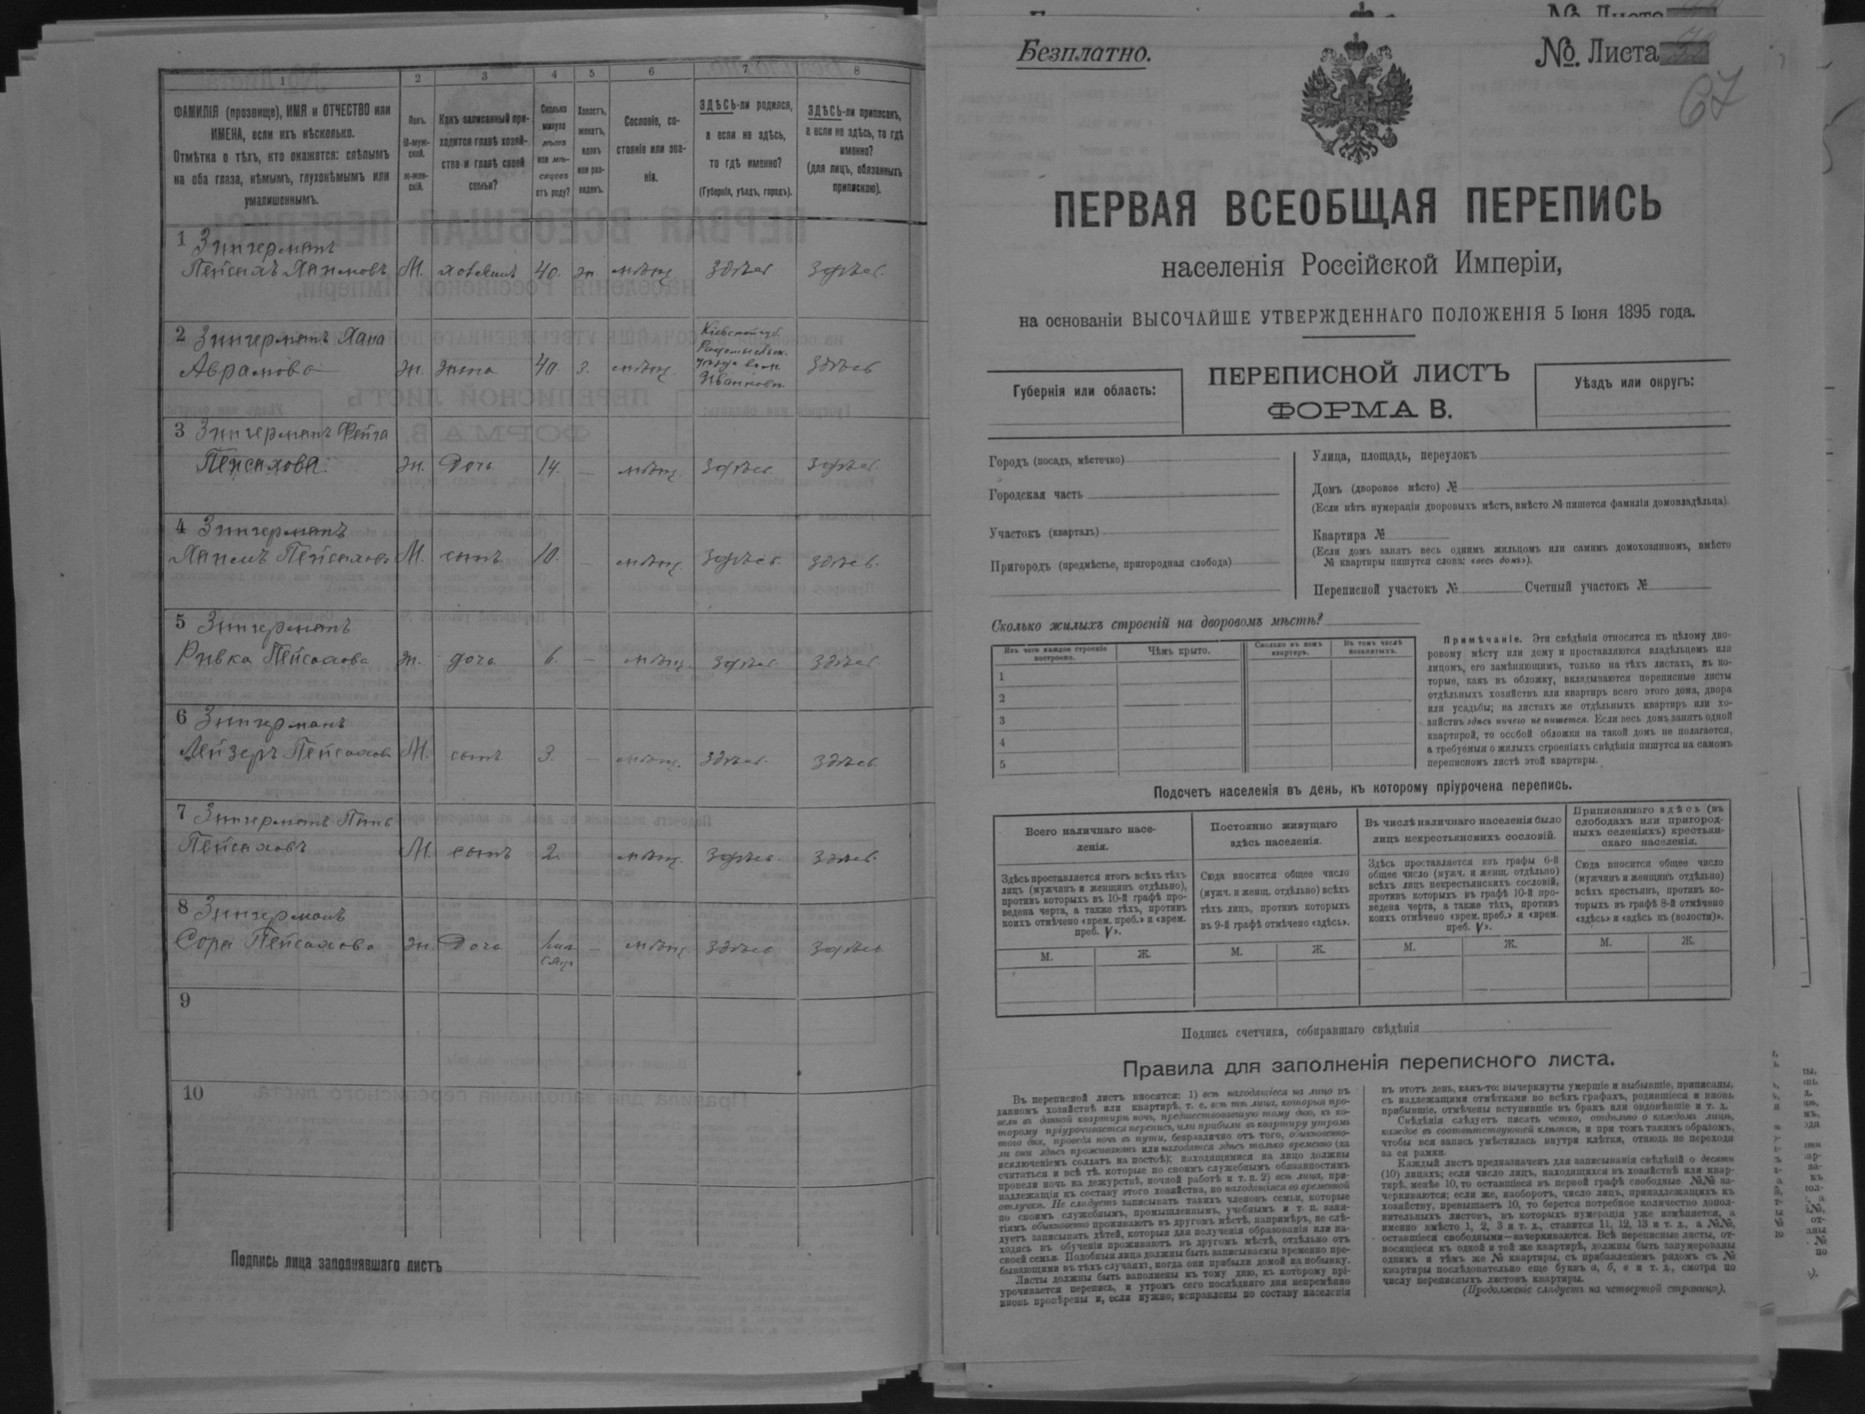 1 2 3 4 5 6 7 8
ФАМИЛІЯ (прозвище), ИМЯ и ОТЧЕСТВО или
ИМЕНА, если ихъ нѣсколько.
Отмѣтка о тѣхъ, кто окажется: слѣпымъ
на оба глаза, нѣмымъ, глухонѣмымъ или
умалишеннымъ.
Полъ.
М-муж-
ской.
ж-жен-
скій.
Какъ записанный при-
ходится главѣ хозяй-
ства и главѣ своей
семьи?
Сколько
минуло
лѣтъ
или мѣ-
сяцевъ
отъ роду?
Холостъ,
женатъ,
вдовъ
или раз-
веденъ.
Сословіе, со-
стояніе или зва-
ніе.
ЗДѢСЬ-ли родился,
а если не здѣсь,
то гдѣ именно?
(Губернія, уѣздъ, городъ).
ЗДѢСЬ-ли приписанъ,
а если не здѣсь, то гдѣ
именно?
(для лицъ, обязанныхъ
припискою).
1 Зингерманъ
Пейсахъ Хаимовъ М. хозяинъ 40. ж. мѣщ. здѣсь здѣсь.
2 Зингерманъ Хана
Аврамова ж. жена 40 з. мѣщ. Кіевской губ. здѣсь
3 Зингерманъ Фейга
Пейсахова ж. дочь 14. – мѣщ. здѣсь здѣсь
4 Зингерманъ
Хаимъ Пейсаховъ М. сынъ 10. – мѣщ. здѣсь. здѣсь.
5 Зингерманъ
Ривка Пейсахова ж. дочь 6. – мѣщ. здѣсь здѣсь
6 Зингерманъ
Лейзеръ Пейсаховъ М. сынъ 3. – мѣщ. здѣсь. здѣсь
7 Зингерманъ
Пейсаховъ М. сынъ 2. мѣщ. здѣсь здѣсь.
8 Зингерманъ
Сора Пейсахова ж. Дочь – мѣщ. здѣсь здѣсь
9
10
Подпись лица заполнявшаго листъ
Безплатно.
№. Листа
67
ПЕРВАЯ ВСЕОБЩАЯ ПЕРЕПИСЬ
населенія Россійской Имперіи,
на основаніи ВЫСОЧАЙШЕ УТВЕРЖДЕННАГО ПОЛОЖЕНІЯ 5 Іюня 1895 года.
Губернія или область:
ПЕРЕПИСНОЙ ЛИСТЪ
ФОРМА В.
Уѣздъ или округъ:
Городъ (посадъ, мѣстечко)
Городская часть
Участокъ (кварталъ)
Пригородъ (предмѣстье, пригородная слобода)
Улица, площадь, переулокъ
Домъ (дворовое мѣсто) №
(Если нѣтъ нумераціи дворовыхъ мѣстъ, вмѣсто № пишется фамилія домовладѣльца)
Квартира №
(Если домъ занятъ весь однимъ жильцомъ или самимъ домохозяиномъ, вмѣсто
№ квартиры пишутся слова: «весь домъ»).
Переписной участокъ № Счетный участокъ №
Сколько жилыхъ строеній на дворовомъ мѣстѣ?
Изъ чего каждое строеніе
построено.
Чѣмъ крыто.
Сколько въ немъ
квартиръ.
Въ томъ числѣ
незанятыхъ.
1
2
3
4
5
Примѣчаніе. Эти свѣдѣнія относятся къ цѣлому дво-
ровому мѣсту или дому и проставляются владѣльцемъ или
лицомъ, его замѣняющимъ, только на тѣхъ листахъ, въ ко-
торые, какъ въ обложку, вкладываются переписные листы
отдѣльныхъ хозяйствъ или квартиръ всего этого дома, двора
или усадьбы; на листахъ же отдѣльныхъ квартиръ или хо-
зяйствъ здѣсь ничего не пишется. Если весь домъ занятъ одной
квартирой, то особой обложки на такой домъ не полагается,
а требуемыя о жилыхъ строеніяхъ свѣдѣнія пишутся на самомъ
переписномъ листѣ этой квартиры.
Подсчетъ населенія въ день, къ которому пріурочена перепись.
Всего наличнаго насе-
ленія.
Здѣсь проставляется итогъ всѣхъ тѣхъ
лицъ (мужчинъ и женщинъ отдѣльно),
противъ которыхъ въ 10-й графѣ про-
ведена черта, а также тѣхъ, противъ
коихъ отмѣчено «врем. преб.» и «врем.
преб. V».
Постоянно живущаго
здѣсь населенія.
Сюда вносится общее число
(мужч. и женщ. отдѣльно) всѣхъ
тѣхъ лицъ, противъ которыхъ
въ 9-й графѣ отмѣчено «здѣсь».
Въ числѣ наличнаго населенія было
лицъ некрестьянскихъ сословій.
Здѣсь проставляется изъ графы 6-й
общее число (мужч. и женщ. отдѣльно)
всѣхъ лицъ некрестьянскихъ сословій,
противъ которыхъ въ графѣ 10-й про-
ведена черта, а также тѣхъ, противъ
коихъ отмѣчено «врем. преб.» и «врем.
преб. V».
Приписаннаго здѣсь (въ
слободахъ или пригород-
ныхъ селеніяхъ) крестьян-
скаго населенія.
Сюда вносится общее число
(мужчинъ и женщинъ отдѣльно)
всѣхъ крестьянъ, противъ ко-
торыхъ въ графѣ 8-й отмѣчено
«здѣсь» и «здѣсь къ (волости)».
М. Ж. М. Ж. М. Ж. М. Ж.
Подпись счетчика, собиравшаго свѣдѣнія
Правила для заполненія переписного листа.
Въ переписной листъ вносятся: 1) всѣ находящіеся на лицо въ
данномъ хозяйствѣ или квартирѣ, т. е. всѣ тѣ лица, которыя про-
вели въ данной квартирѣ ночь, предшествовавшую тому дню, къ ко-
торому пріурочивается перепись, или прибыли въ квартиру утромъ
этого дня, проведя ночь въ пути, безразлично отъ того, обыкновенно-
ли они здѣсь проживаютъ или находятся здѣсь только временно (за
исключеніемъ солдатъ на постоѣ); находящимися на лицо должны
считаться и всѣ тѣ, которые по своимъ служебнымъ обязанностямъ
провели ночь на дежурствѣ, ночной работѣ и т. п. 2) всѣ лица, при-
надлежащія къ составу этого хозяйства, но находящіяся во временной
отлучкѣ. Не слѣдуетъ записывать такихъ членовъ семьи, которые
по своимъ служебнымъ, промышленнымъ, учебнымъ и т. п. заня-
тіямъ обыкновенно проживаютъ въ другомъ мѣстѣ, напримѣръ, не слѣ-
дуетъ записывать дѣтей, которыя для полученія образованія или на-
ходясь въ обученіи проживаютъ въ другомъ мѣстѣ, отдѣльно отъ
своей семьи. Подобныя лица должны быть записываемы временно пре-
бывающими въ тѣхъ случаяхъ, когда они прибыли домой на побывку.
Листы должны быть заполнены къ тому дню, къ которому прі-
урочивается перепись, и утромъ сего послѣдняго дня непремѣнно
вновь провѣрены и, если нужно, исправлены по составу населенія
въ этотъ день, какъ-то: вычеркнуты умершіе и выбывшіе, приписаны,
съ надлежащими отмѣтками во всѣхъ графахъ, родившіеся и вновь
прибывшіе, отмѣчены вступившіе въ бракъ или овдовѣвшіе и т. д.
Свѣдѣнія слѣдуетъ писать четко, отдѣльно о каждомъ лицѣ,
каждое въ соотвѣтствующей клѣткѣ, и при томъ такимъ образомъ,
чтобы вся запись умѣстилась внутри клѣтки, отнюдь не переходя
за ея рамки.
Каждый листъ предназначенъ для записыванія свѣдѣній о десяти
(10) лицахъ; если число лицъ, находящихся въ хозяйствѣ или квар-
тирѣ, менѣе 10, то оставшіеся въ первой графѣ свободные №№ за-
черкиваются; если же, наоборотъ, число лицъ, принадлежащихъ къ
хозяйству, превышаетъ 10, то берется потребное количество допол-
нительныхъ листовъ, въ которыхъ нумерація уже измѣняется, а
именно вмѣсто 1, 2, 3 и т. д., ставится 11, 12, 13 и т. д., а №№,
оставшіеся свободными—зачеркиваются. Всѣ переписные листы, от-
носящіеся къ одной и той же квартирѣ, должны быть занумерованы
однимъ и тѣмъ же № квартиры, съ прибавленіемъ рядомъ съ №
квартиры послѣдовательно еще буквъ а, б, в и т. д., смотря по
числу переписныхъ листовъ квартиры.
(Продолженіе слѣдуетъ на четвертой страницѣ).